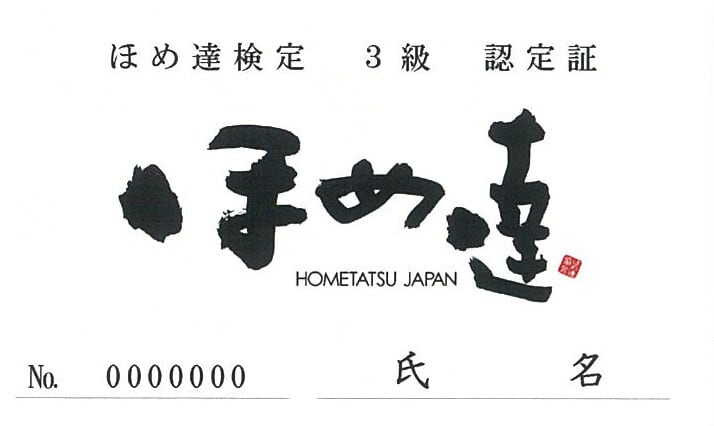 ほめ達検定　３級　認定証
ほめ達
HOMETATSU JAPAN
No. 0000000　氏　名